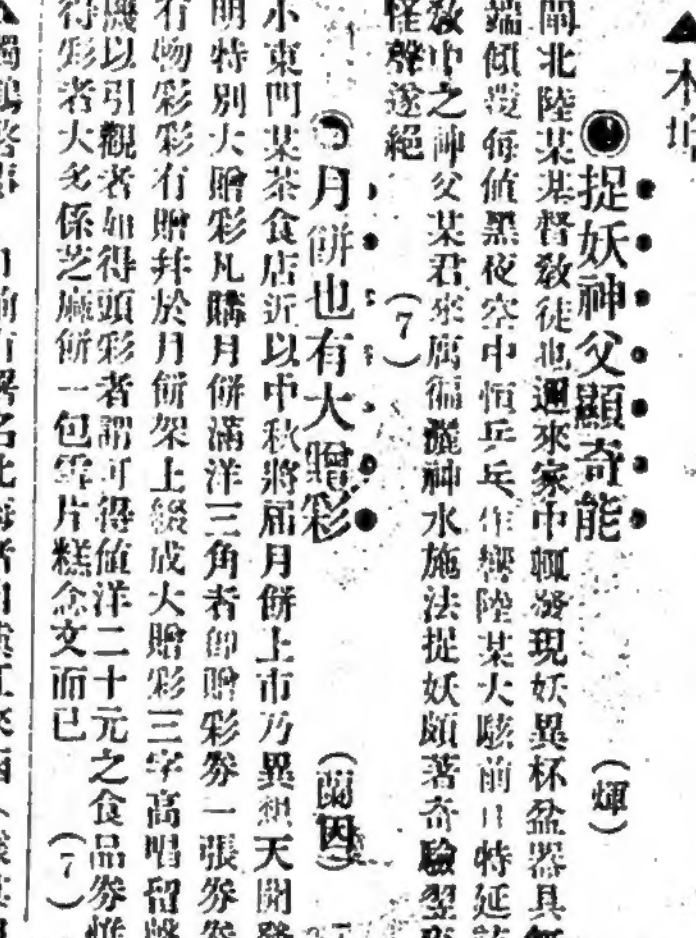 ▲木
◉捉妖神父顯奇能 (煇)
閘北陸某基督敎徒也邇來家中輒發現妖異杯盆器具無
端傾覆每値黑夜空中恒乒乓作響陸某大駭前日特延該
敎中之神父某君來寓徧灑神水施法捉妖頗著奇驗翌
怪聲遂絕 (7)
月餅也有大贈彩 (蘭因)
小東門某茶食店近以中秋將屆月餅上市乃異想天開發
明特別大贈彩凡購月餅滿洋三角者卽贈彩券一張券
有物彩彩有贈幷於月餅架上綴成大贈彩三字高唱留聲
以引觀者如得頭彩者謂可得値洋二十元之食品券惟
得彩者大多係芝麻餅一包雲片糕念文而已 (7)